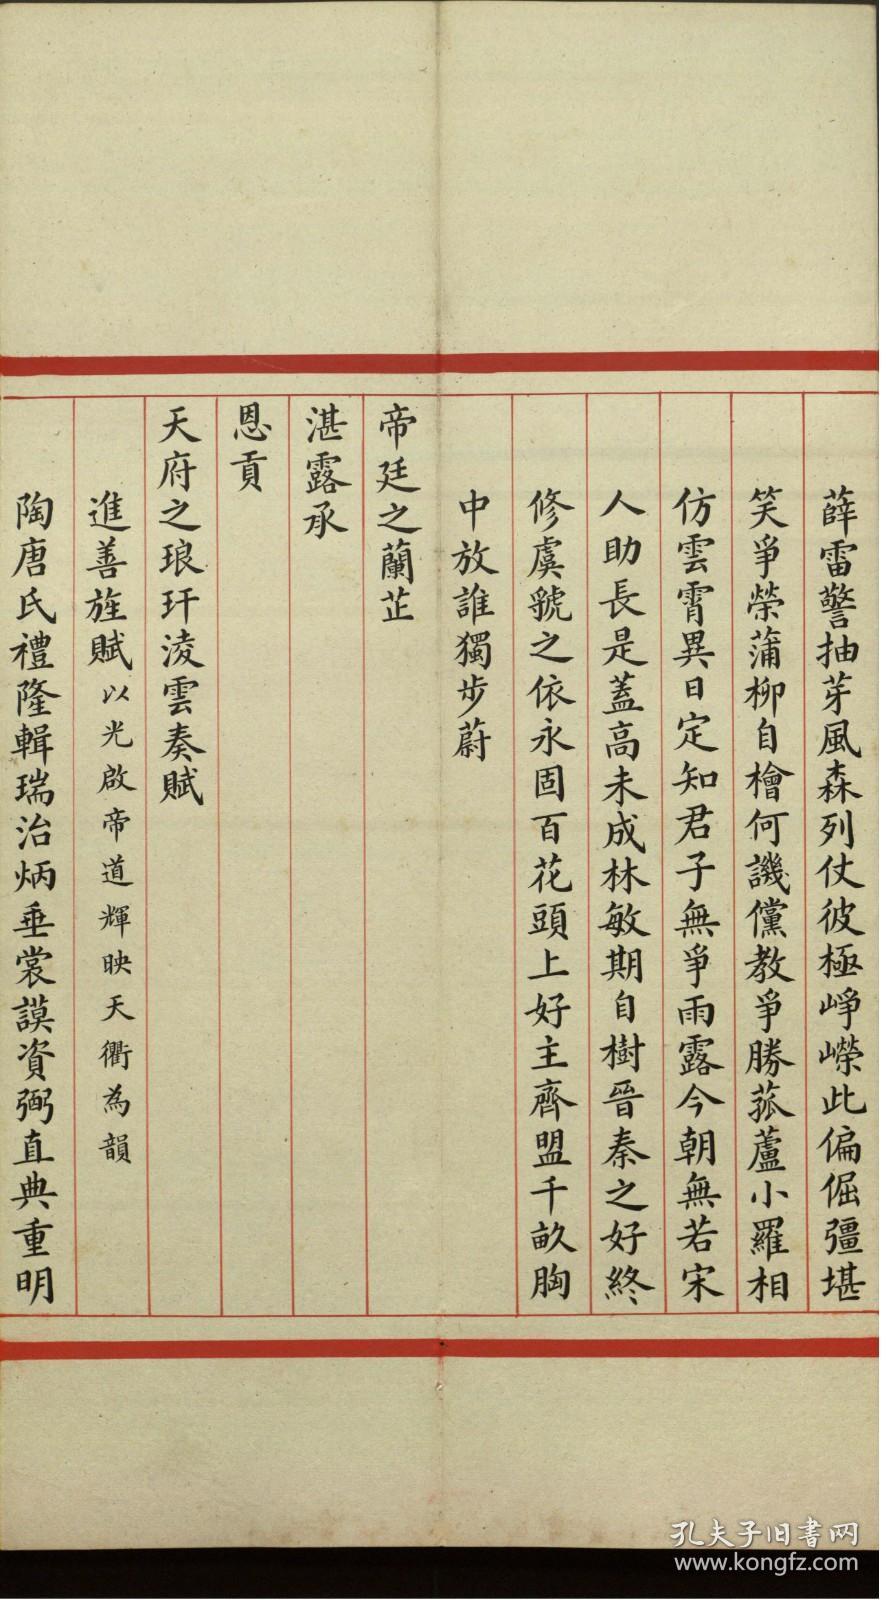 薛雷警抽芽風森列仗彼極崢嶸此偏倔彊堪
笑爭榮蒲柳自檜何譏儻教爭勝菰蘆小羅相
仿雲霄異日定知君子無爭雨露今朝無若宋
人助長是蓋高未成林敏期自樹晉秦之好終
修虞虢之依永固百花頭上好主齊盟千畝胸
中放誰獨步蔚
帝廷之蘭芷
湛露承
恩貢
天府之琅玕淩雲奏賦
進善旌賦以光啟帝道輝映天衢為韻
陶唐氏禮隆輯瑞治炳垂裳謨資弼直典重明
孔夫子旧書网
www.kongfz.com